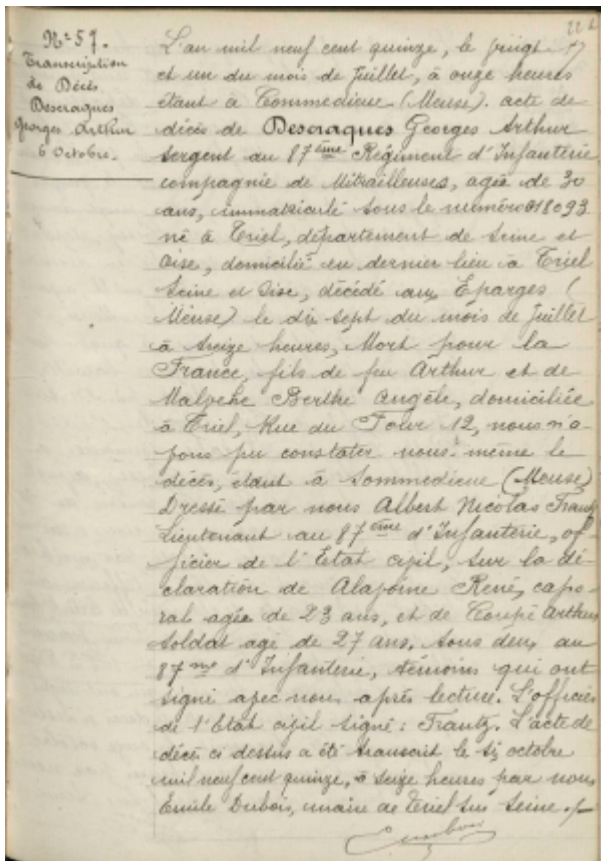 N° 57.
Transcription
de Décès
Descraques
Georges Arthur
6 Octobre.
L'an mil neuf cent quinze, le vingt
et un du mois de Juillet, à onze heures
étant à Sommedieue (Meuse). acte de
décès de Descraques Georges Arthur
sergent au 87ème Régiment d'Infanterie
compagnie de Mitrailleuses, agée de 30
ans, immatriculé sous le numéro 018093
né à Triel, département de Seine et
Oise, domicilié en dernier lieu à Triel
Seine et Oise, décédé aux Éparges (
Meuse) le dix sept du mois de Juillet
à treize heures, Mort pour la
France, fils de feu Arthur et de
Malpehe Berthe Angèle, domiciliée
à Triel, Rue du Four 12, nous n'a-
vons pu constater nous-même le
décès, étant à Sommedieue (Meuse)
Dressé par nous Albert Nicolas Frantz
Lieutenant au 87ème d'Infanterie, of-
ficier de l'Etat civil, sur la dé-
claration de Alajoine René, capo-
ral agée de 23 ans, et de Coupé Arthur
soldat agé de 27 ans, tous deux au
87me d'Infanterie, témoins qui ont
signé avec nous après lecture. L'officier
de l'Etat civil signé: Frantz. L'acte de
décès ci dessus a été transcrit le six octobre
mil neuf cent quinze, à seize heures par nous
Emile Dubois, maire de Triel sur Seine ./.